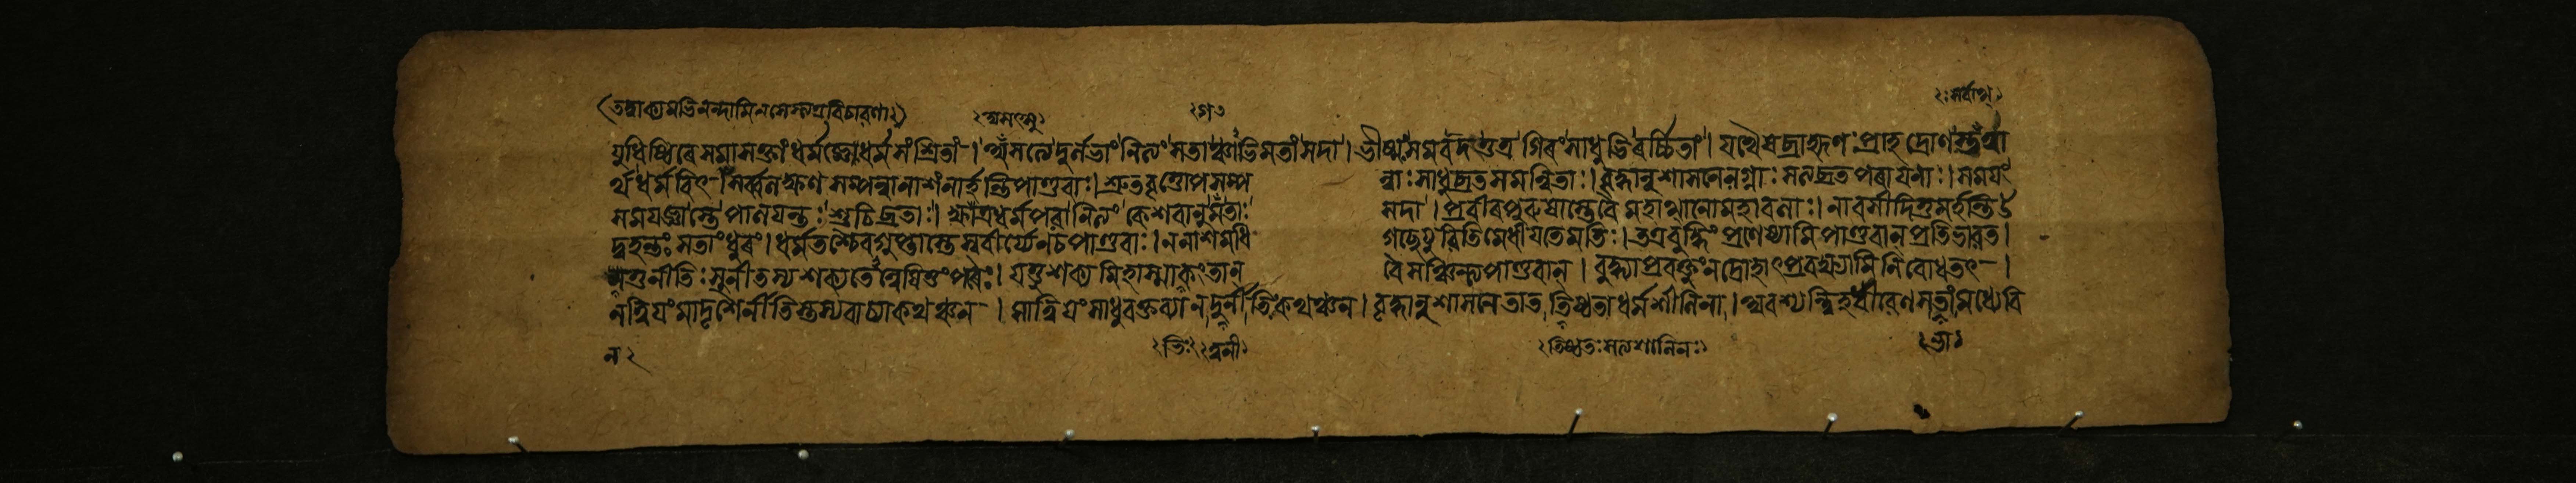 (তদ্বাক্যমভিনন্দামিনমেস্ত্যত্রবিচারণা॥)
অসৎসু
গত
ঃসর্বার্থ
যুধিষ্ঠিৰে সমাসক্তাং ধর্মজ্ঞোধর্মসংশ্রিতাং । দুর্লভাং নিত্যং সতাঞ্চাভিমতাং সদা । ভীষ্মঃ সমবদত্তত্র গিৰং সাধুভিৰর্চ্চিতাং । যথৈষব্রাহ্মণঃ প্রাহ দ্রোণ
র্থধর্মবিৎ । সর্বলক্ষণসম্পন্নানাশংনার্হন্তিপাণ্ডবাঃ । শ্রুতবৃত্তোপসম্প ন্নাঃ সাধুব্রতসমন্বিতাঃ । বৃদ্ধানুশাসনে মগ্নাঃ সত্যব্রতপৰায়ণাঃ । সময়ং
সময়জ্ঞাস্তে পালয়ন্তঃ শুচিব্রতাঃ । ক্ষাত্রধর্মপৰা নিত্যং কেশবানুগতাঃ সদা । প্রবীৰপুৰুষাস্তেবৈ মহাত্মানোমহাবলাঃ । নাবসীদিতুমর্হন্তি উ
দ্বহন্তঃ সতাং ধুৰং । ধর্মতশ্চৈবগুপ্তাস্তে স্ববীর্য্যেণচপাণ্ডবাঃ । ননাশমধি গচ্ছেয়ুৰিতিমেধীয়তেমতিঃ । তত্রবুদ্ধিং প্রণেষ্যামি পাণ্ডবান্ প্রতিভাৰত ।
নতুনীতিঃ সুনীতস্য শক্যতেন্বেষিতুংপৰৈঃ । যত্তুশক্যমিহাস্মাকংতান্ বৈসঞ্চিন্ত্যপাণ্ডবান্ । বুদ্ধ্যাপ্রবক্তুংনদ্রোহাৎপ্রবক্ষ্যামি নিবোধতৎ ।
নত্বিয়ং মাদৃশৈর্নীতিস্তস্যবাচ্যাকথঞ্চন । সাত্বিয়ং সাধুবক্তব্যা নদুর্নীতিকথঞ্চন । বৃদ্ধানুশাসনে তাত তিষ্ঠতাধর্মশীলিনা । অবশ্যন্ত্বিহধীৰেণ সতাংমধ্যেবি
ন
তিঃ
ত্বনী
তিষ্ঠতঃসত্যশালিনঃ